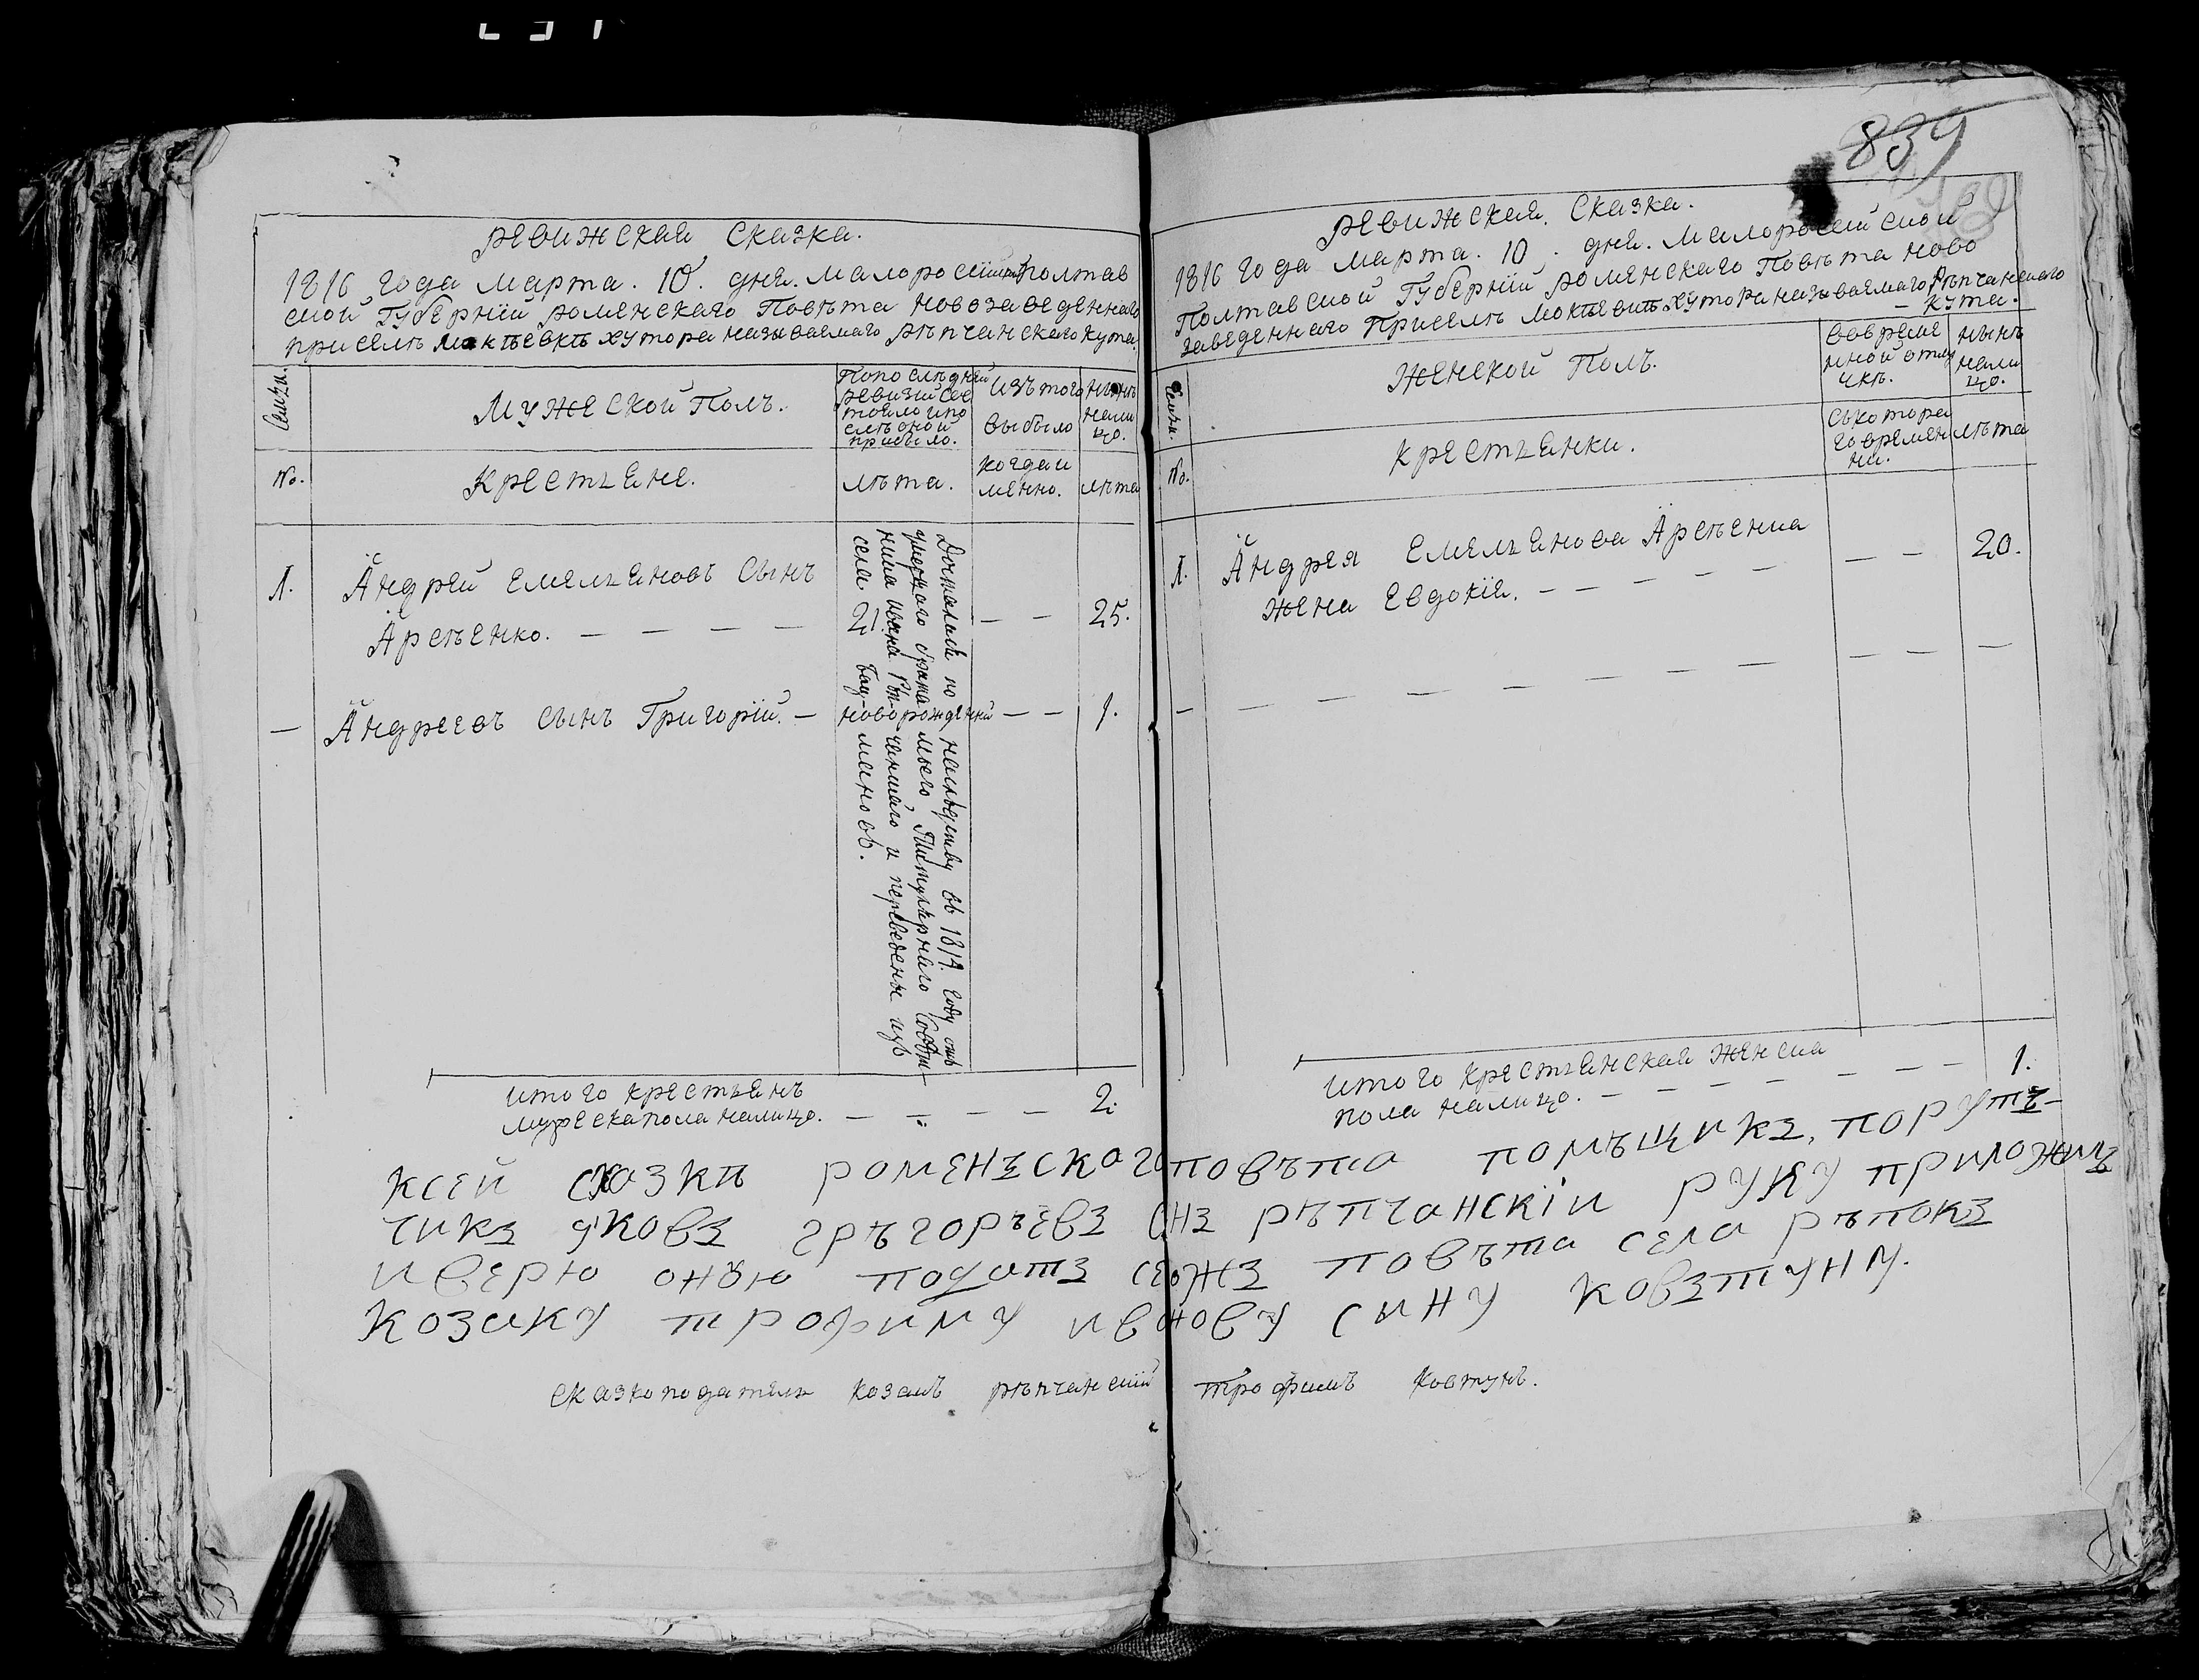 839
Ревижская Сказка.
1816 года марта. 10. дня. малоросейской Полтав
ской Губернїй роменскаго Повѣта новозаведеннаго
при селѣ хутора называемаго рѣпчанскаго кута.
Семьи.
Мужеской Полъ.
По послѣдней
ревизїй сос
тояло и по
слѣ оной
прибыло.
изъ того
выбыло
нынѣ
нали
цо.
№.
Крестьяне.
лѣта.
когда и
менно.
лѣта
1.
Андрей Емельяновъ сынъ
Арсѣенко. — — — — 21. — — 25.
— Андреевъ сынъ Григорїй. — новорожденй — — 1.
Достался по наслѣдству въ 1814. году отъ
умершаго брата моего, Титулярнаго Совѣт-
ника Ивана Рѣпчанскаго и переведенъ изъ
села
итого крестьянъ
мужеска пола налицо. — — — — 2.
Ревижская. Сказка.
1816 года марта. 10. дня. малоросейской
Полтавской Губернїй роменскаго Повѣта ново
заведеннаго при селѣ хутора называемаго Рѣпчанскаго
— кута.
Семьи.
Женской Полъ.
вовреме
нной отлу
чкѣ.
нынѣ
нали
цо.
№.
крестьянки.
съ котора
го времен
ни.
лѣта
1.
Андрея Емельянова Арсѣенка
жена Евдокїя. — — — — — — — 20.
— — — — — — — — — —
итого крестьянская женска
пола налицо. — — — — — — 1.
ксей сказки роменъскаго повъта помъщикъ, порутъ-
чикъ яковъ гръгорьевъ снъ рѣпчанскїи руку приложилъ
иверю оную податъ сегожъ повъта села рѣпокъ
козаку трофиму иванову сину ковътуну.
сказкоподатель козакъ рѣпчанскїй трофимъ ковтунъ.